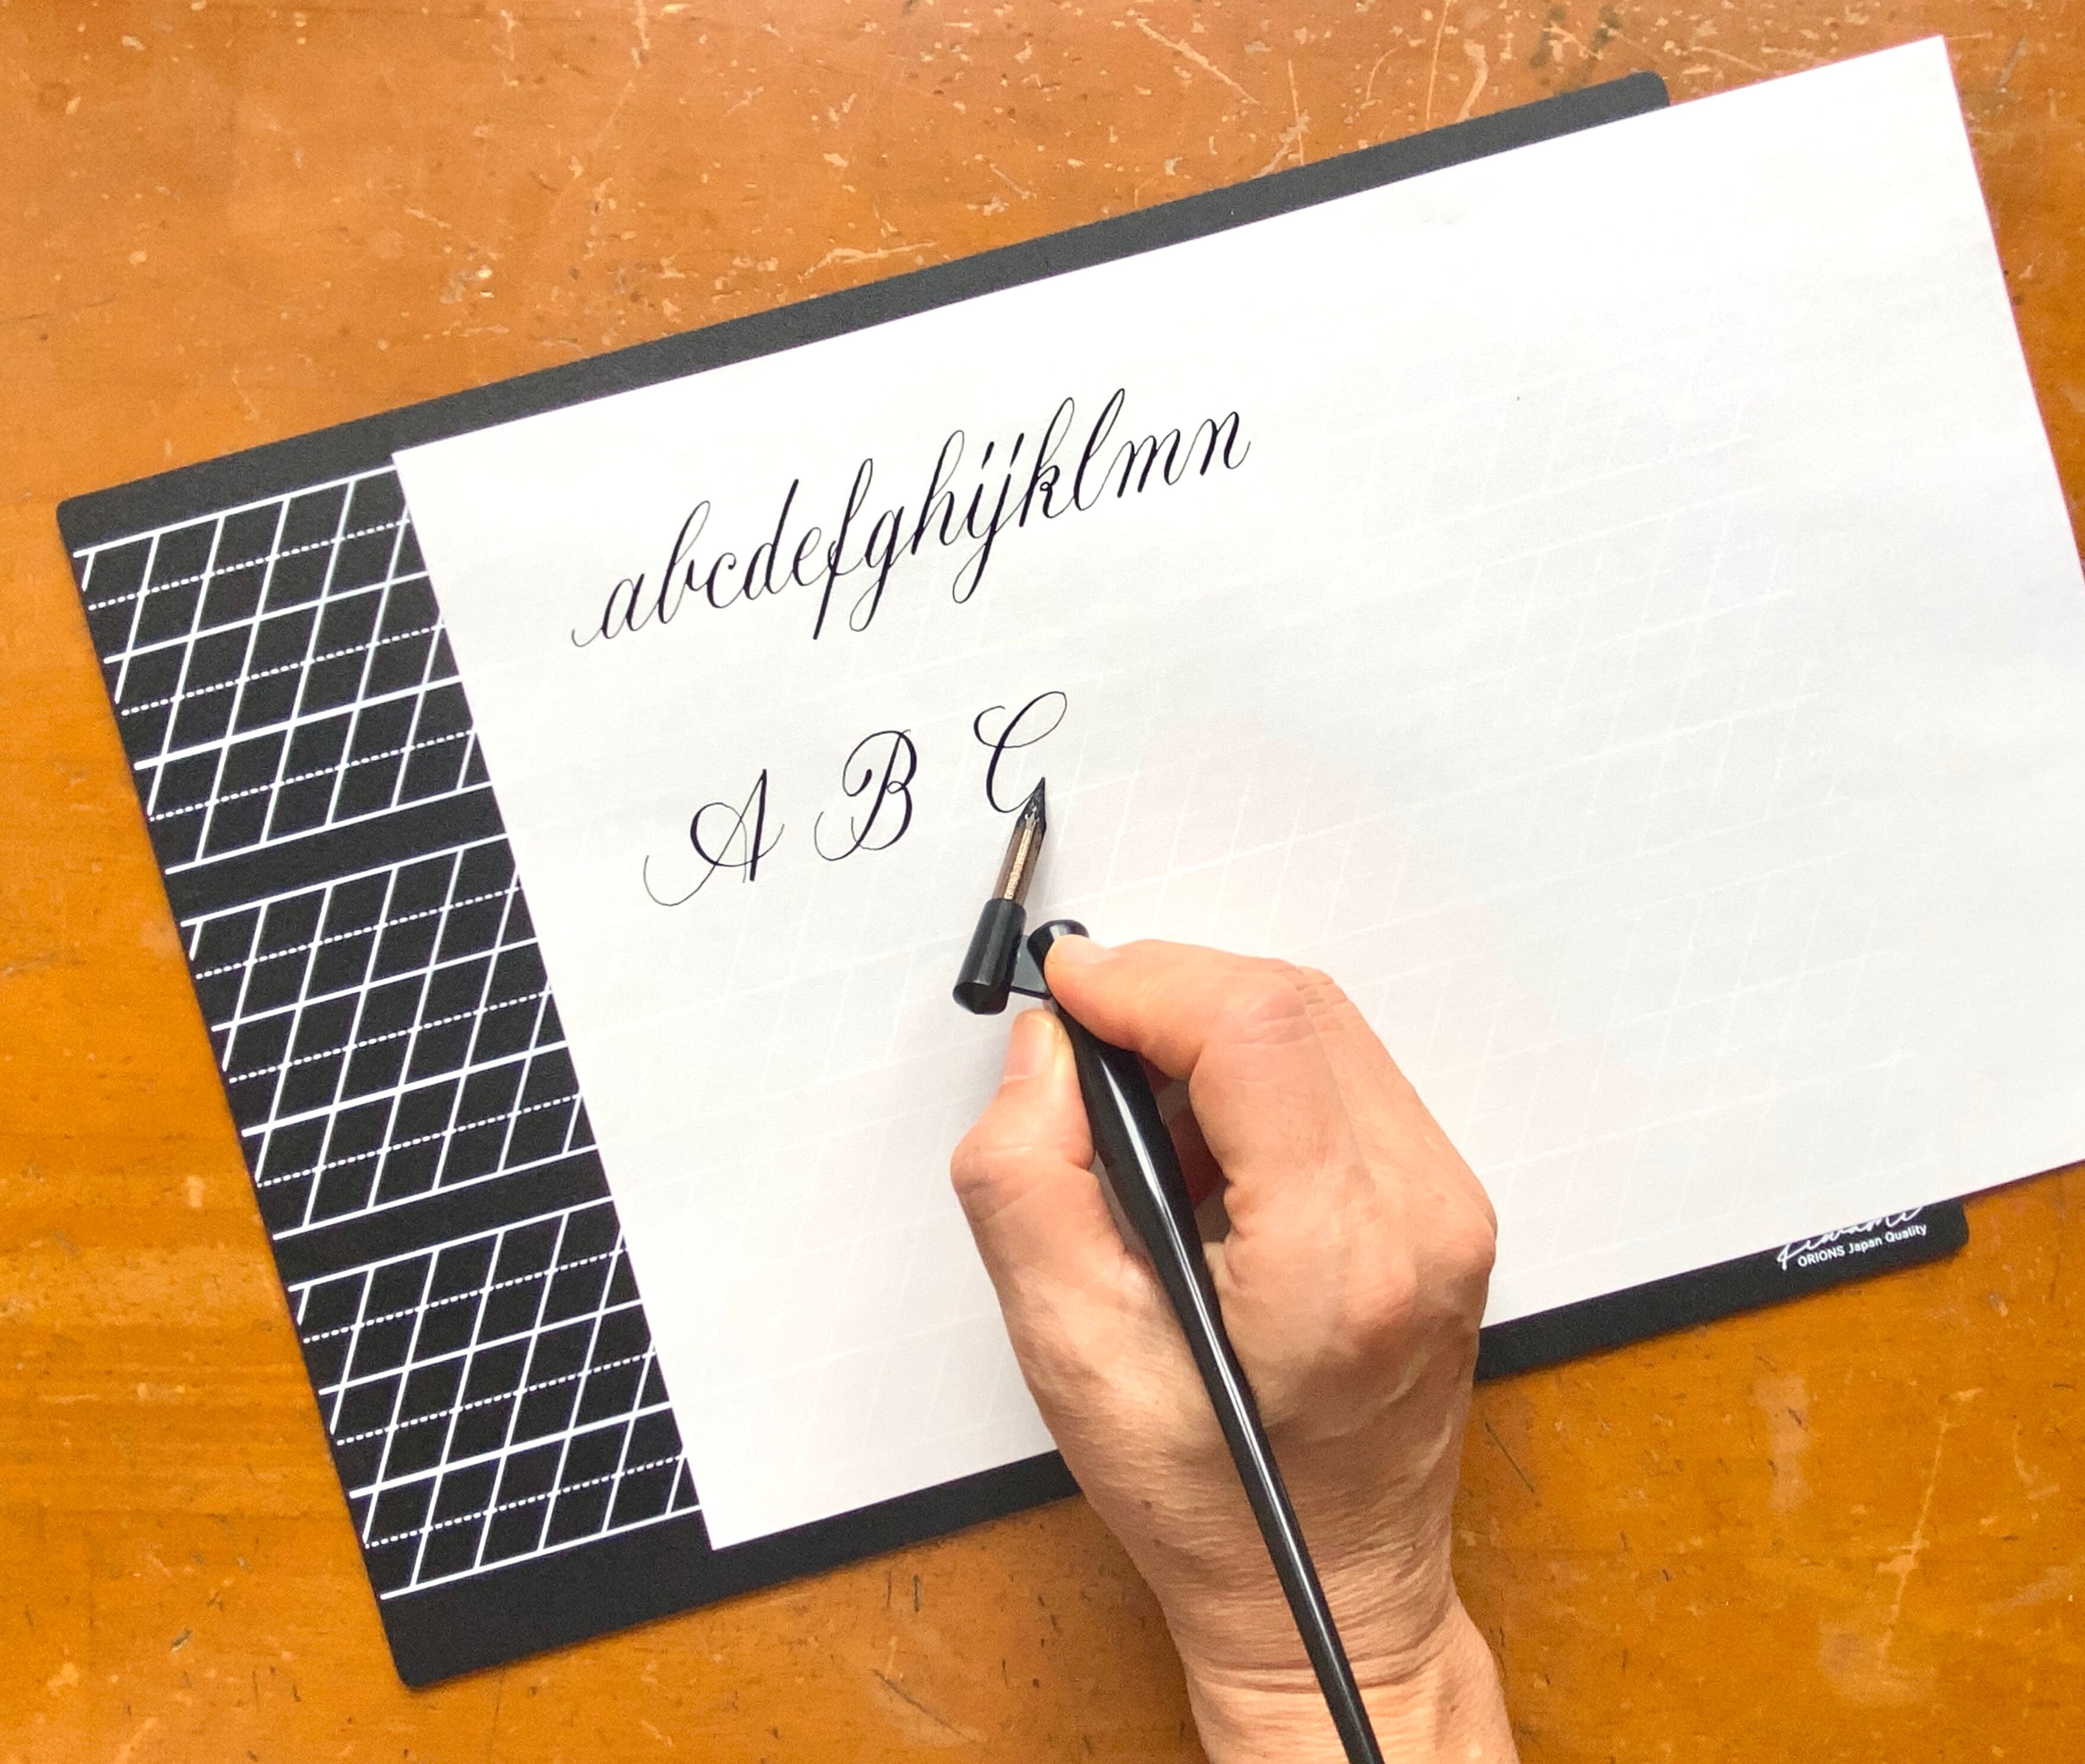 abcdefghijklmn
A B C
Kiwami
ORIONS Japan Quality